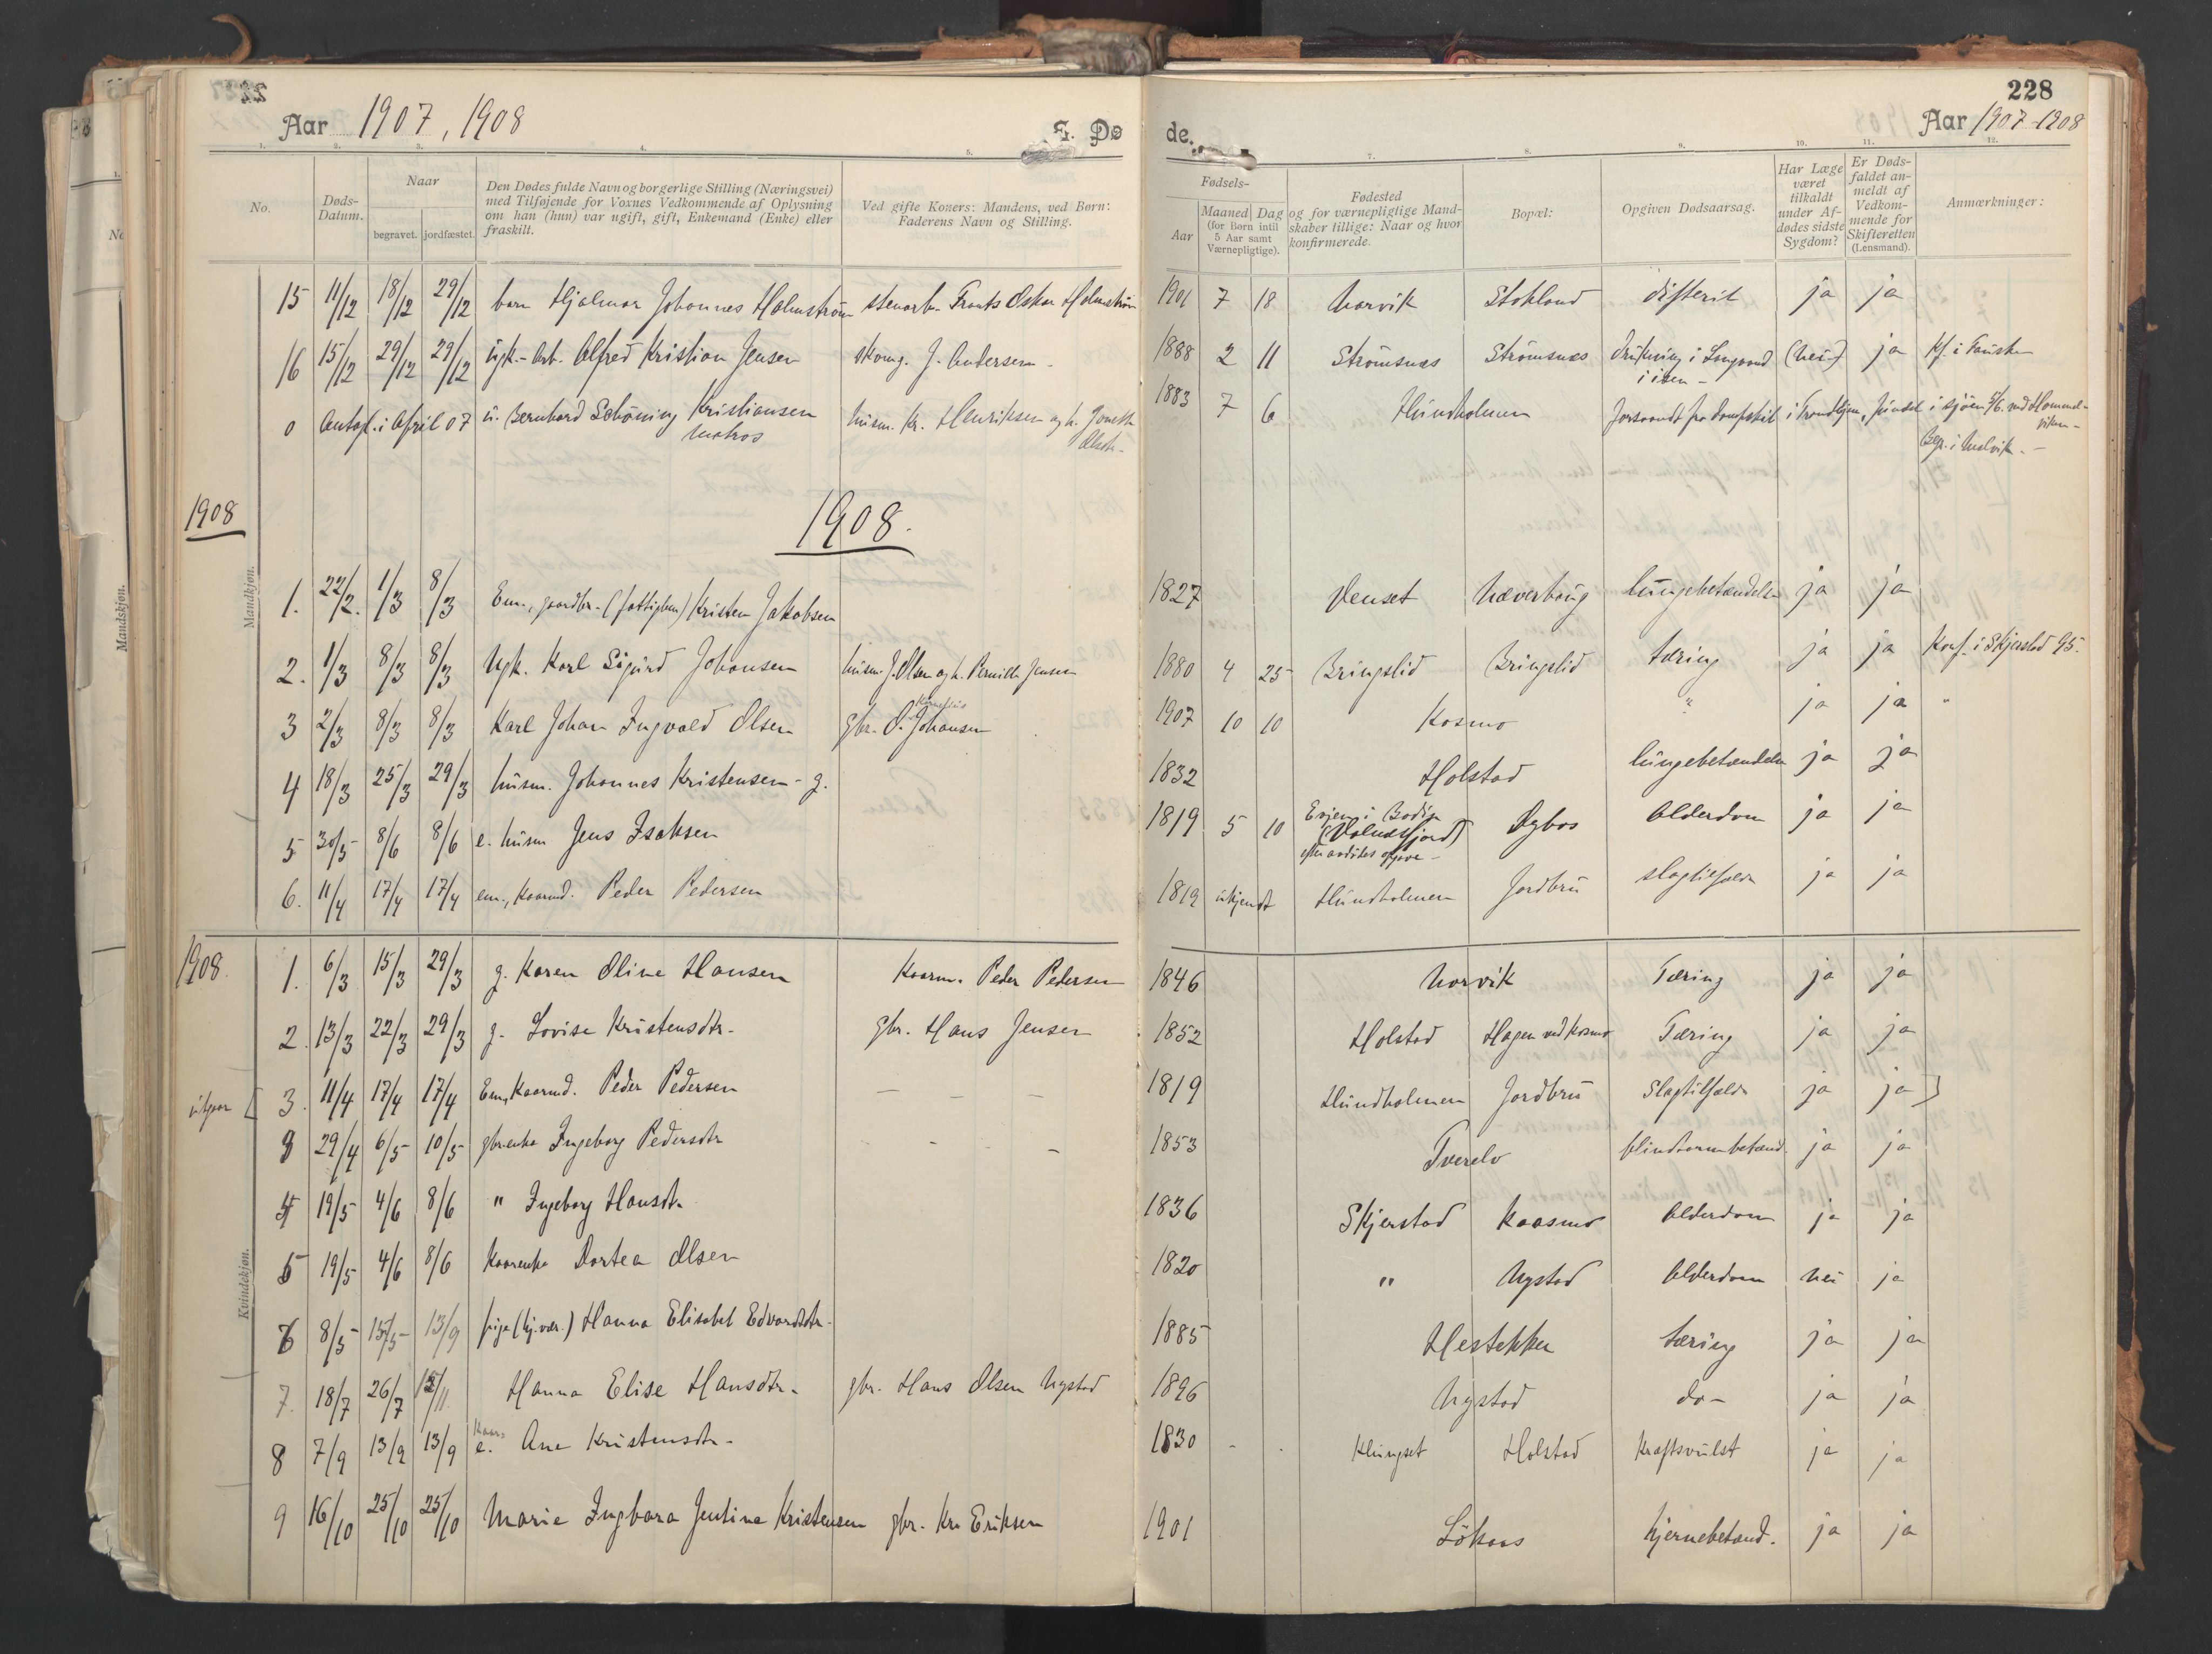 228
Aar 1907, 1908
E. Dø de.
Aar 1907-1908
1. 2. 3. 4. 5. 7. 8. 9. 10. 11. 12.
No.
Døds-Datum.
Naar
begravet. jordfæstet.
Den Dødes fulde Navn og borgerlige Stilling (Næringsvei)
med Tilføjende for Voxnes Vedkommende af Oplysning
om han (hun) var ugift, gift, Enkemand (Enke) eller
fraskilt.
Ved gifte Koners: Mandens, ved Børn:
Faderens Navn og Stilling.
Fødsels-
Aar
Maaned Dag
(for Børn intil
5 Aar samt
Værnepligtige).
Fødested
og for værnepligtige Mand-
skaber tillige: Naar og hvor
konfirmerede.
Bopæl:
Opgiven Dødsaarsag.
Har Læge
været
tilkaldt
under Af-
dødes sidste
Sygdom?
Er Døds-
faldet an-
meldt af
Vedkom-
mende for
Skifteretten
(Lensmand).
Anmærkninger:
15 11/12 18/12 29/12 barn Hjalmar Johannes Holmström stenarb. Frants Oskar Holmström 1901 7 18 Narvik Stokland difterit ja ja
16 15/12 29/12 29/12 ugk.-arb. Alfred Kristian Jensen skomg. J. Andersen - 1888 2 11 Strömsnæs Strömsnæs drukning i (nei) ja Kf. i Fauske
i isen -
0 Antagl. i April 07 u. Bernhard Schöning Kristiansen husm. Kr. Henriksen og h. 1883 7 6 Hundholmen Forsvandt fra dampskib i Trondhjem, fundet i sjöen 5/6. ved Hommel-
viken -
matros Olsdtr.
Beg. i Malvik. -
1908
1908.
Mandkjøn.
1. 22/2. 1/3 8/3 Em., gaardbr. (fattiglem) Kristen Jakobsen 1827 Venset Næverhaug lungebetændelse ja ja
2. 1/3 8/3 8/3 Ugk. Karl Sigurd Johansen husm. J. Olsen og h. Pernille Jensen 1880 4 25 Bringslid Bringslid tæring ja ja Konf. i Skjerstad 95.
3 2/3 8/3 8/3 Karl Johan Ingvald Olsen gbr. O. Kornelius Johansen 1907 10 10 Kosmo " ja ja "
4 18/3 25/3 29/3 husm. Johannes Kristensen - g. 1832 Holstad lungebetændelse ja ja
5 30/5 8/6 8/6 e. husm Jens Isaksen 1819 5 10 Evjen i Bodin
(Valnesfjord)
efter avdödes opgave - Alderdom ja ja
6. 11/4 17/4 17/4 em., kaarmd. Peder Pedersen 1819 ukjendt Hundholmen Jordbru slagtilfælde ja ja
1908.
Kvindekjøn.
1. 6/3 15/3 29/3 g. Karen Oline Hansen Kaarm. Peder Pedersen 1846 Norvik Tæring ja ja
2. 13/3 22/3 29/3 g. Lovise Kristensdtr. gbr. Hans Jensen 1852 Holstad Hagen ved Kosmo Tæring ja ja
utgaar [ 3. 11/4 17/4 17/4 Em, Kaarmd. Peder Pedersen - - - 1819 Hundholmen Jordbru Slagtilfælde ja ja ]
3 29/4 6/5 10/5 gbrenke Ingeborg Pedersdtr - - 1853 Tverelv blindtarmbetænd. ja ja
4 19/5 4/6 8/6 " Ingeborg Hansdtr. 1836 Skjerstad Kaasmo Alderdom ja ja
5 19/5 4/6 8/6 Kaarenke Dortea Olsen 1820 " Nystad Alderdom nei ja
6 8/5 15/5 13/9 pige (hj.vær.) Hanna Elisabet Edvardsdtr. 1885 Hestekker tæring ja ja
7. 18/7 26/7 Hanna Elise Hansdtr. gbr. Hans Olsen Nystad 1896 Nystad do - ja ja
8 7/9 13/9 13/9 Kaar. e. Ane Kristensdtr. 1830 - . Klungset Holstad Kræftsvulst ja ja
9 16/10 25/10 25/10 Marie Ingbora Jentine Kristensen gbr. Kr. Eriksen 1901 Lökaas hjernebetænd. ja ja
Mandskjøn.